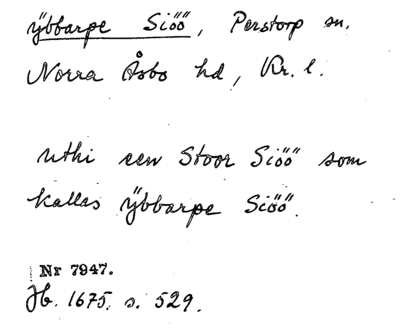 ÿbbarpe Siöö, Perstorp sn.
Norra Åsbo hd, Kr. l.
uthi een Stoor Siöö som
kallas ÿbbarpe Siöö.
Nr 7947.
Jb. 1675. s. 529.